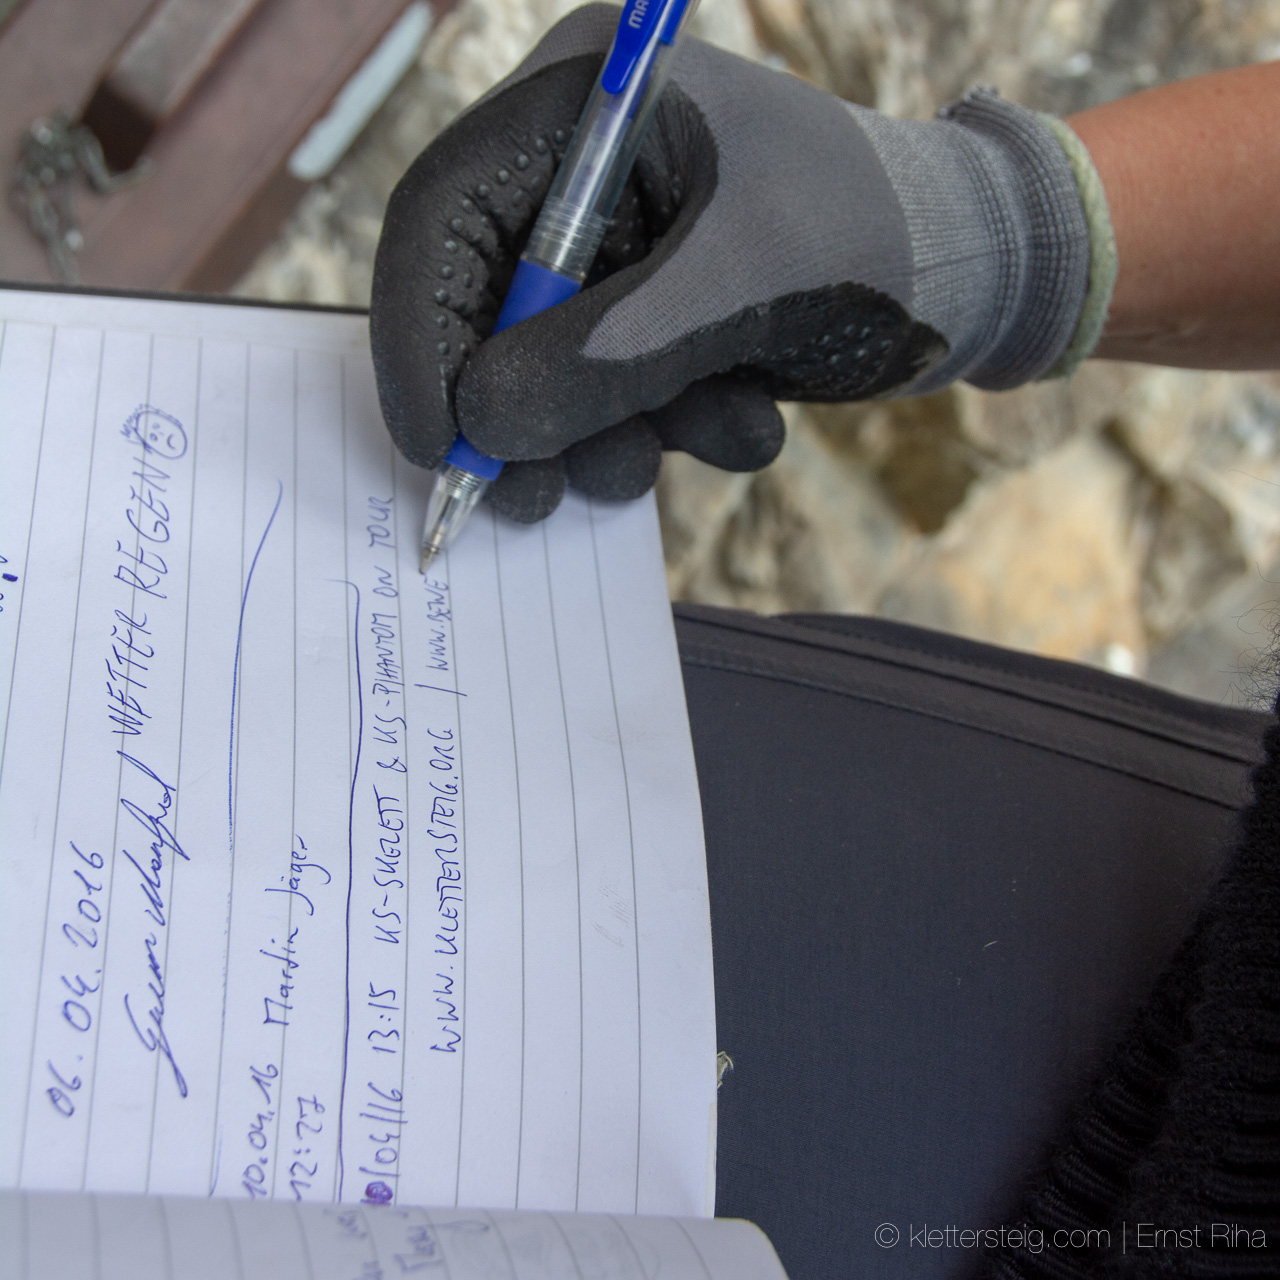 06.04.2016
WETTER REGEN
10.04.16 Martin Jäger
12:27
10/04/16 13:15 KS-SKELETT & KS-PHANTOM ON TOUR
WWW.KLETTERSTEIG.ORG / WWW.BEWE
MA
© klettersteig.com | Ernst Riha